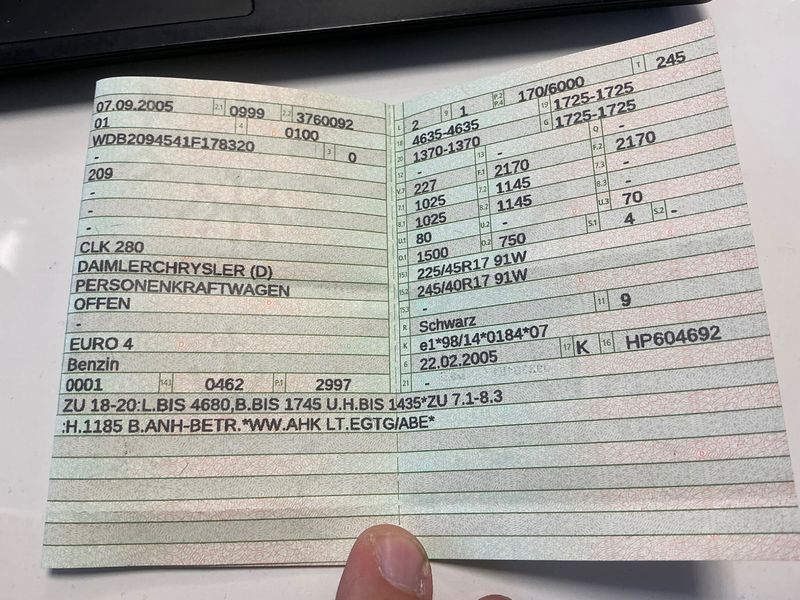 07.09.2005 2.1 0999 2.2 3760092
01 4 0100
WDB2094541F178320 3 0
-
209
-
-
-
CLK 280
DAIMLERCHRYSLER (D)
PERSONENKRAFTWAGEN
OFFEN
-
EURO 4
Benzin
0001 14.1 0462 P.1 2997
L 2 9 1 P.2 P.4 170/6000 T 245
18 4635-4635 19 1725-1725
20 1370-1370 G 1725-1725
12 - 13 - Q -
V.7 227 F.1 2170 F.2 2170
7.1 1025 7.2 1145 7.3 -
8.1 1025 8.2 1145 8.3 -
U.1 80 U.2 - U.3 70
O.1 1500 O.2 750 S.1 4 S.2 -
15.1 225/45R17 91W
15.2 245/40R17 91W
15.3 -
R Schwarz 11 9
K e1*98/14*0184*07
6 22.02.2005 17 K 16 HP604692
21 -
ZU 18-20:L.BIS 4680,B.BIS 1745 U.H.BIS 1435*ZU 7.1-8.3
:H.1185 B.ANH-BETR.*WW.AHK LT.EGTG/ABE*